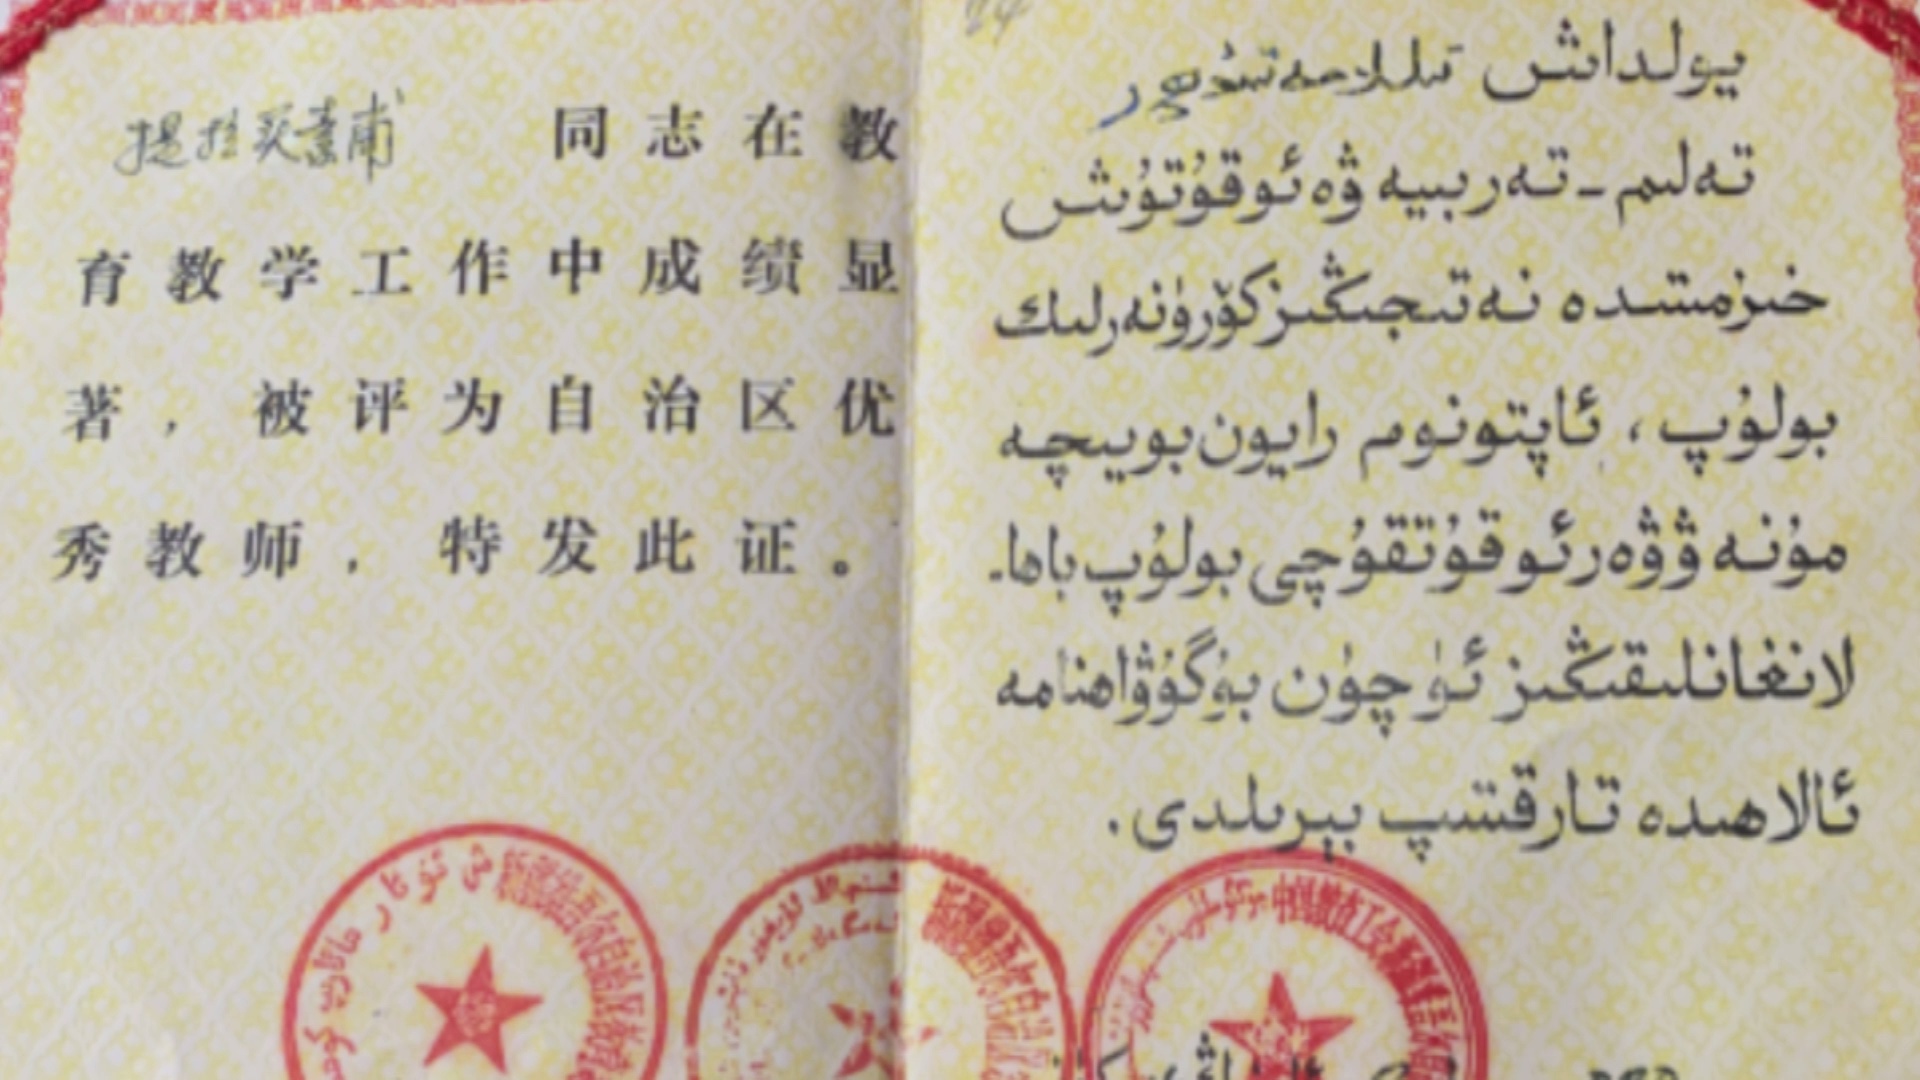 提拉买素甫 同志在教
育教学工作中成绩显
著，被评为自治区优
秀教师，特发此证。
24
يولداش
تەلىم - تەربىيە ۋە ئوقۇتۇش
خىزمىتىدە نەتىجىڭىز كۆرۈنەرلىك
بولۇپ، ئاپتونوم رايون بويىچە
مۇنەۋۋەر ئوقۇتقۇچى بولۇپ باھا-
لانغانلىقىڭىز ئۈچۈن بۇ گۇۋاھنامە
ئالاھىدە تارقىتىپ بېرىلدى.
新疆维吾尔自治区教
新疆维吾尔自治区
中国教育工会新疆